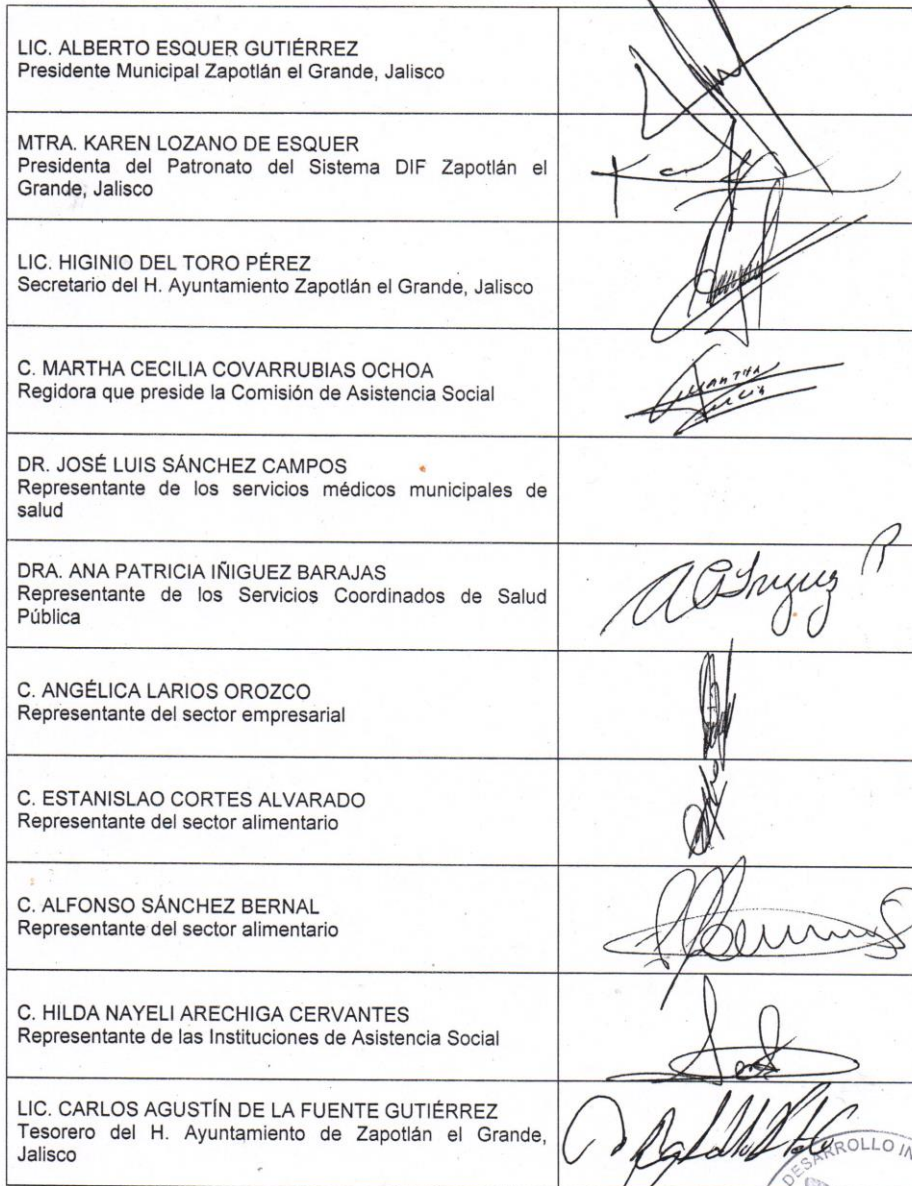 LIC. ALBERTO ESQUER GUTIÉRREZ
Presidente Municipal Zapotlán el Grande, Jalisco
MTRA. KAREN LOZANO DE ESQUER
Presidenta del Patronato del Sistema DIF Zapotlán el
Grande, Jalisco
LIC. HIGINIO DEL TORO PÉREZ
Secretario del H. Ayuntamiento Zapotlán el Grande, Jalisco
C. MARTHA CECILIA COVARRUBIAS OCHOA
Regidora que preside la Comisión de Asistencia Social
MARTHA
DR. JOSÉ LUIS SÁNCHEZ CAMPOS
Representante de los servicios médicos municipales de
salud
DRA. ANA PATRICIA IÑIGUEZ BARAJAS
Representante de los Servicios Coordinados de Salud
Pública
C. ANGÉLICA LARIOS OROZCO
Representante del sector empresarial
C. ESTANISLAO CORTES ALVARADO
Representante del sector alimentario
C. ALFONSO SÁNCHEZ BERNAL
Representante del sector alimentario
C. HILDA NAYELI ARECHIGA CERVANTES
Representante de las Instituciones de Asistencia Social
LIC. CARLOS AGUSTÍN DE LA FUENTE GUTIÉRREZ
Tesorero del H. Ayuntamiento de Zapotlán el Grande,
Jalisco
DESARROLLO IN